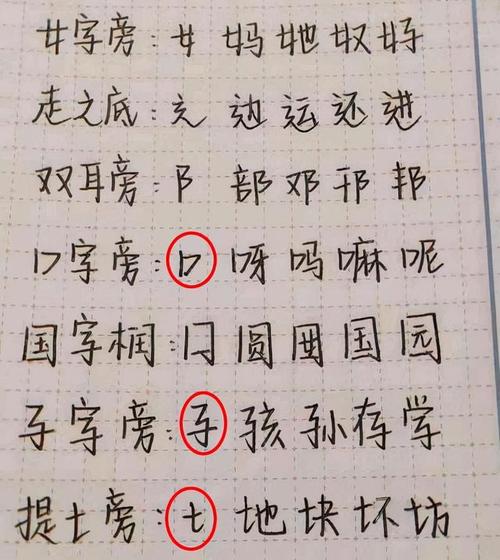 女字旁:女 妈 她 奴 好
走之底:辶 边 运 还 进
双耳旁:阝 部 邓 邗 邦
口字旁:口 呀 吗 嘛 呢
国字框:囗 圆 国 园
子字旁:子 孩 孙 存 学
提土旁:土 地 块 坏 坊